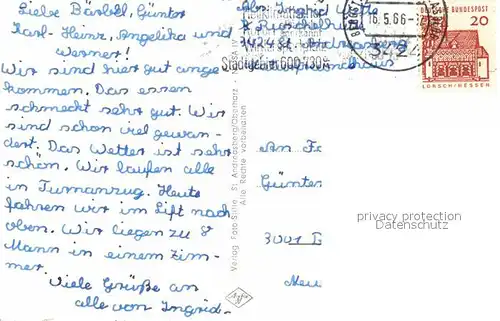 Liebe Bärbel, Günter
Karl-Heinz, Angelika und
Werner!
Wir sind hier gut ange
kommen. Das essen
schmeckt sehr gut. Wir
sind schon viel gewan-
dert. Das Wetter ist sehr
schön. Wir laufen alle
in Turnanzug. Heute
fahren wir im Lift nach
oben. Wir liegen zu 8
Mann in einem zim-
mer.
Viele Grüße an
alle von Ingrid.
Abs. Ingrid
3424 St. Andreasberg
600-730
16.5.66
3424
DEUTSCHE BUNDESPOST
20
LORSCH/HESSEN
Verlag Foto Stille, St. Andreasberg/Oberharz
Alle Rechte vorbehalten
Agfa
An Fa
Günter
3001
privacy protection
Datenschutz